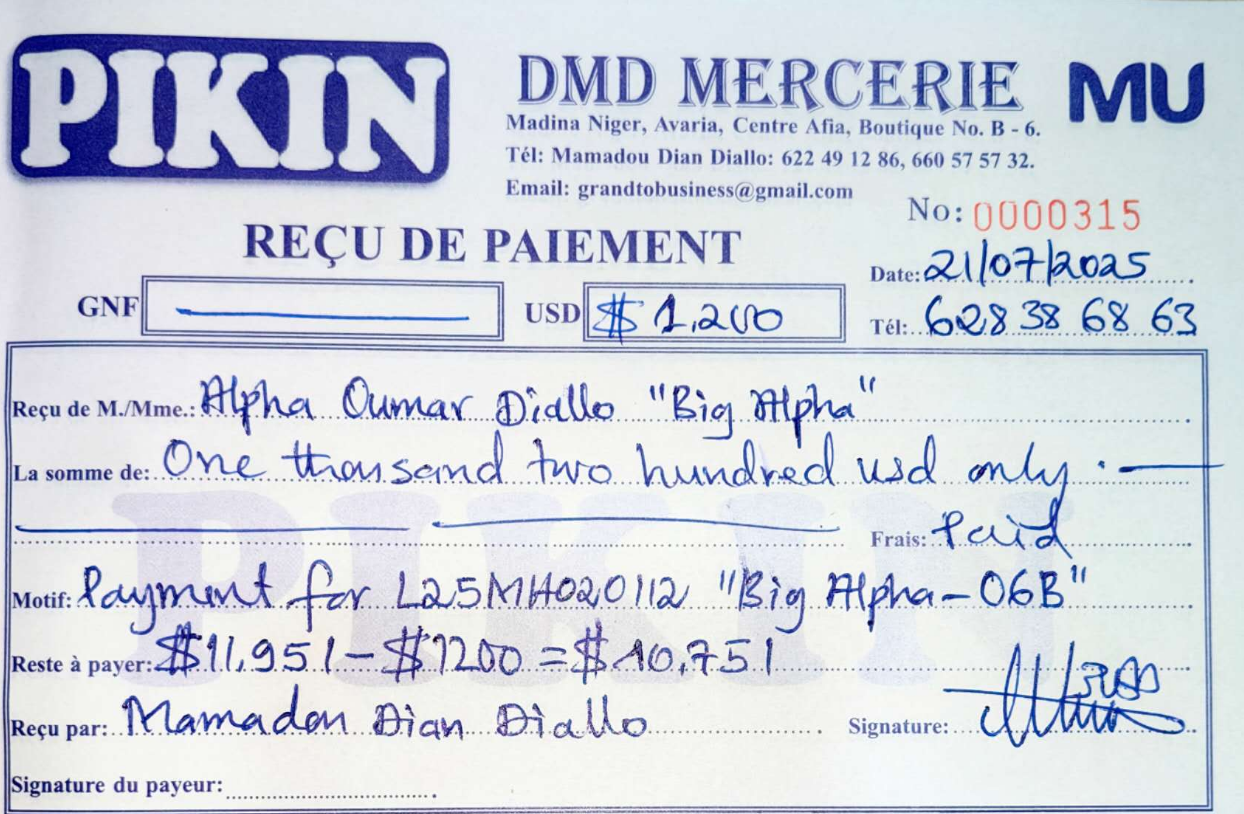 PIKIN
DMD MERCERIE MU
Madina Niger, Avaria, Centre Afia, Boutique No. B - 6.
Tél: Mamadou Dian Diallo: 622 49 12 86, 660 57 57 32.
Email: grandtobusiness@gmail.com
No: 0000315
REÇU DE PAIEMENT
Date: 21/07/2025
GNF USD $ 1,200
Tél: 628 38 68 63
Reçu de M./Mme.: Alpha Oumar Diallo "Big Alpha"
La somme de: One thousand two hundred usd only.
Frais: Paid
Motif: Payment for L25MH020112 "Big Alpha-06B"
Reste à payer: $11,951-$1200=$10,751
Reçu par: Mamadou Dian Diallo Signature:
Signature du payeur:
PIKIN